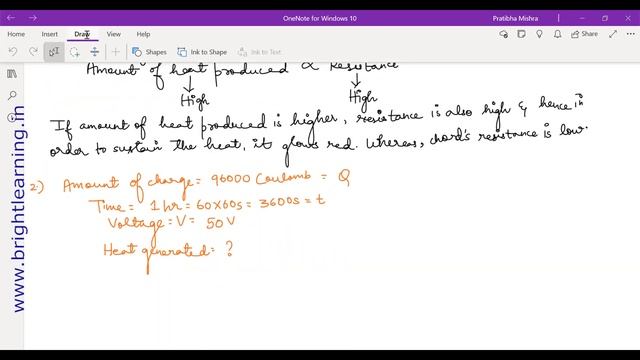 OneNote for Windows 10
Pratibha Mishra
Home Insert Draw View Help
Shapes Ink to Shape Ink to Text
Amount of heat produced ∝ Resistance
High High
If amount of heat produced is higher, resistance is also high & hence in
order to sustain the heat, it glows red. Whereas, chord's resistance is low.
2.) Amount of charge = 96000 Coulomb = Q
Time = 1 hr = 60x60s = 3600s = t
Voltage = V = 50 V
Heat generated = ?
www.brightlearning.in